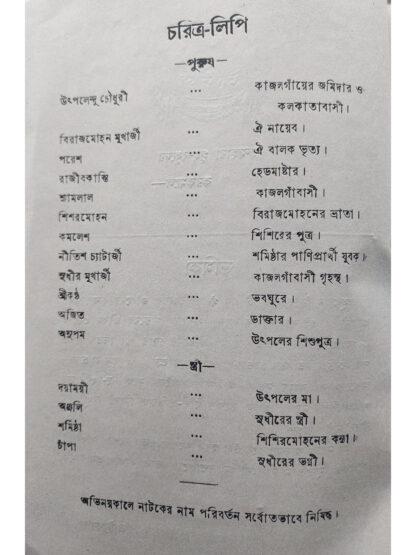 চরিত্র-লিপি
—পুরুষ—
উৎপলেন্দু চৌধুরী ... কাজলগাঁয়ের জমিদার ও
কলকাতাবাসী।
বিরাজমোহন মুখার্জী ... ঐ নায়েব।
পরেশ ... ঐ বালক ভৃত্য।
রাজীবকান্তি ... হেডমাষ্টার।
শ্যামলাল ... কাজলগাঁবাসী।
শিশিরমোহন ... বিরাজমোহনের ভ্রাতা।
কমলেশ ... শিশিরের পুত্র।
নীতিশ চ্যাটার্জী ... শমিষ্ঠার পাণিপ্রার্থী যুবক।
সুধীর মুখার্জী ... কাজলগাঁবাসী গৃহস্থ।
শ্রীকণ্ঠ ... ভবঘুরে।
অজিত ... ডাক্তার।
অনুপম ... উৎপলের শিশুপুত্র।
—স্ত্রী—
দয়াময়ী ... উৎপলের মা।
অঞ্জলি ... সুধীরের স্ত্রী।
শমিষ্ঠা ... শিশিরমোহনের কন্যা।
চাঁপা ... সুধীরের ভগ্নী।
অভিনয়কালে নাটকের নাম পরিবর্তন সর্বোতভাবে নিষিদ্ধ।